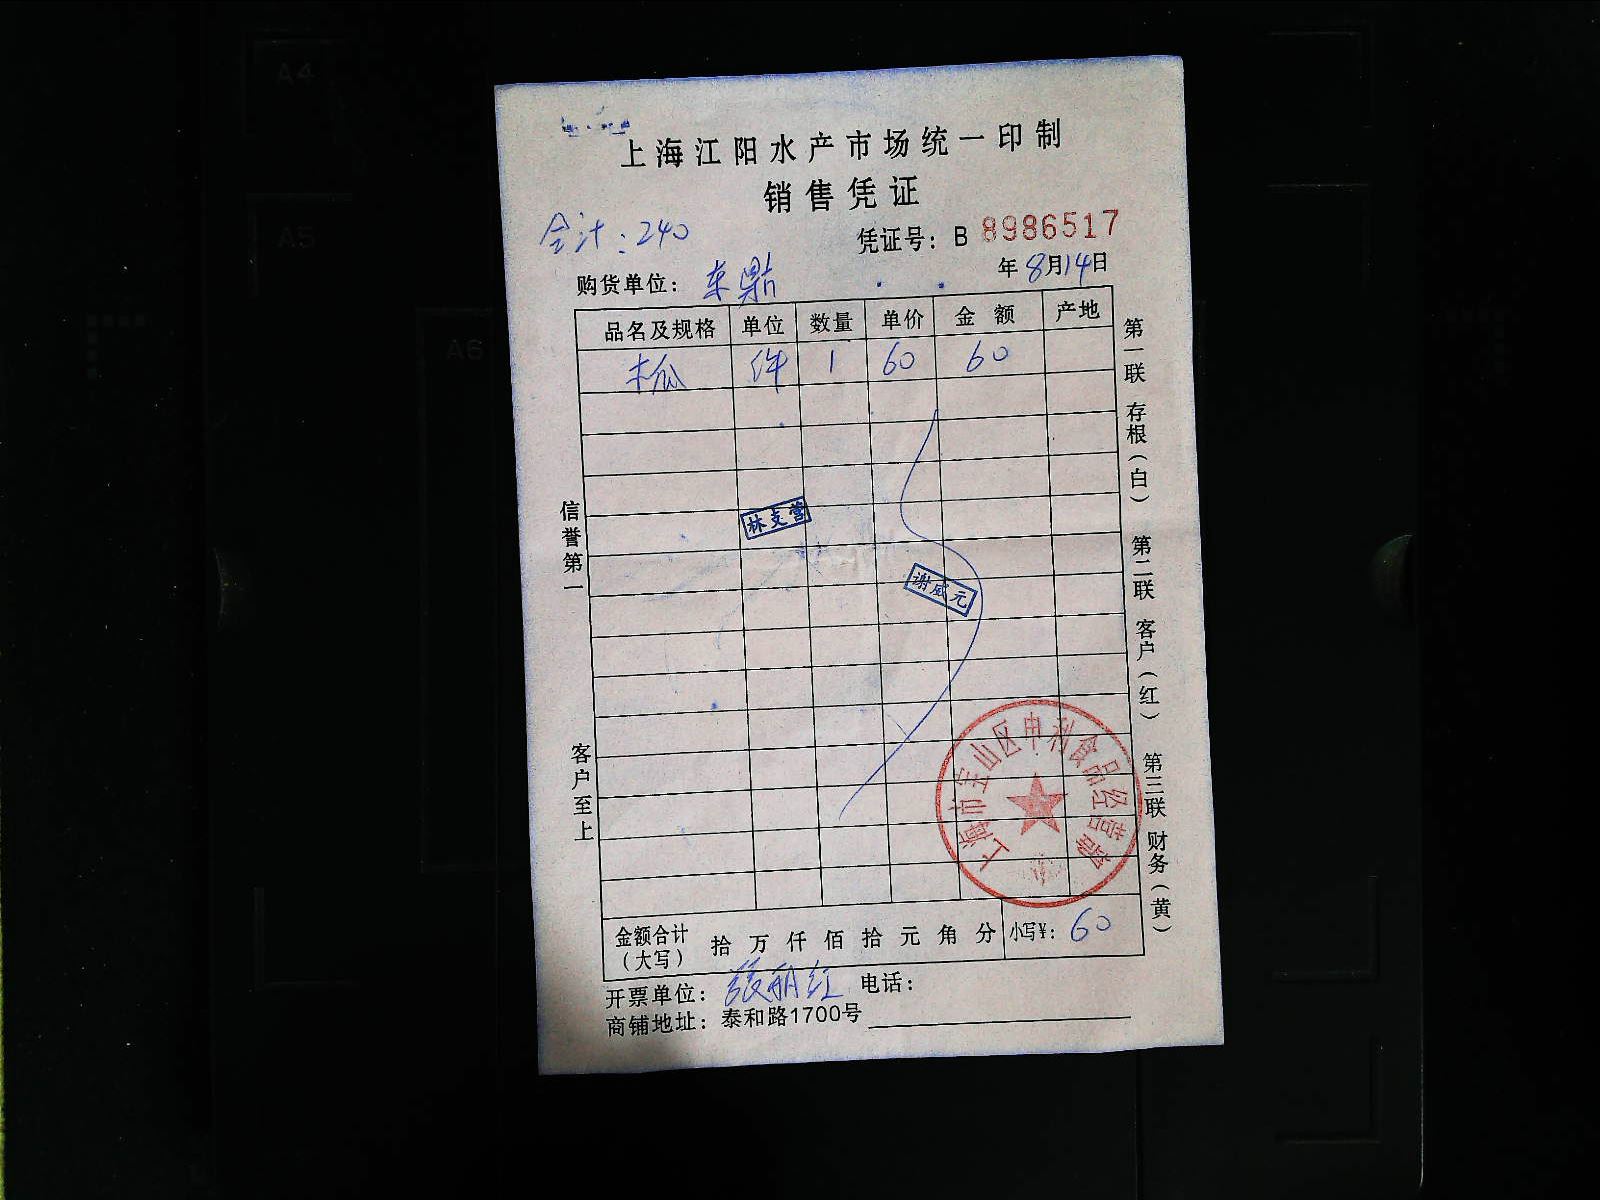 上海江阳水产市场统一印制
销售凭证
合计:240
凭证号:B 8986517
购货单位:东
年8月14日
品名及规格 单位 数量 单价 金额 产地
木瓜 件 1 60 60
林支营
谢威元
信誉第一
客户至上
第一联 存根(白) 第二联 客户(红) 第三联 财务(黄)
上海市宝山区申利食品经营部
金额合计(大写) 拾万仟佰拾元角分 小写¥:60
开票单位:张丽红 电话:
商铺地址:泰和路1700号
A4
A5
A6